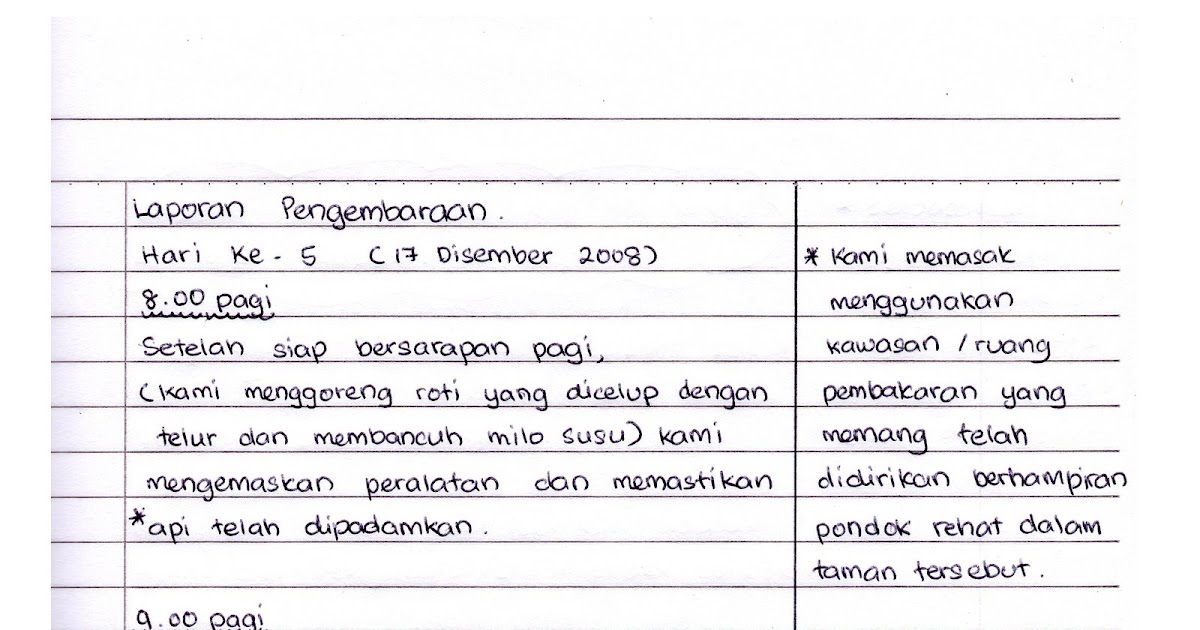 Laporan Pengembaraan.
Hari Ke - 5 (17 Disember 2008)
8.00 pagi
Setelah siap bersarapan pagi,
(kami menggoreng roti yang dicelup dengan
telur dan membancuh milo susu) kami
mengemaskan peralatan dan memastikan
*api telah dipadamkan.
9.00 pagi
* Kami memasak
menggunakan
kawasan / ruang
pembakaran yang
memang telah
didirikan berhampiran
pondok rehat dalam
taman tersebut.